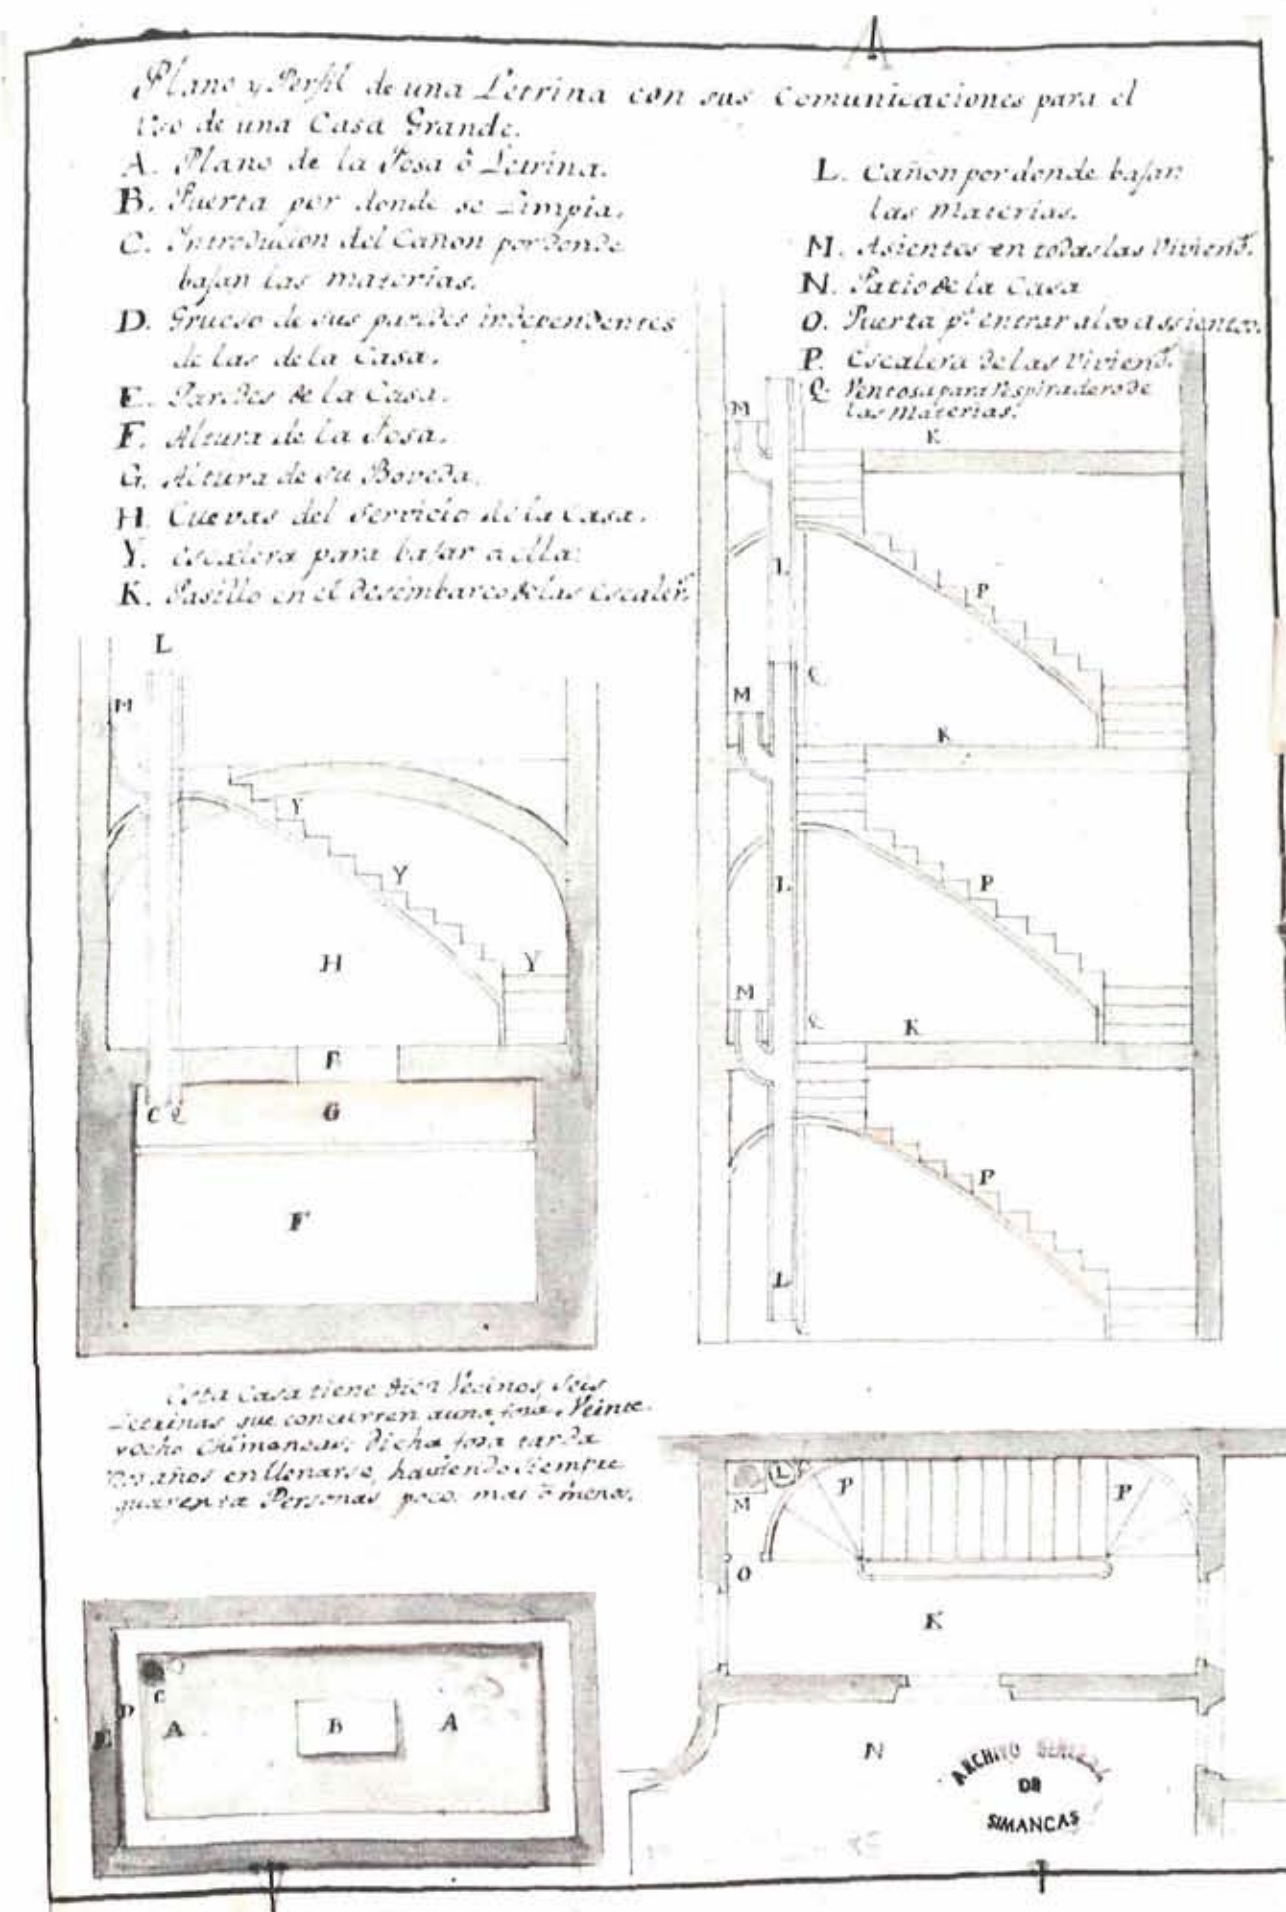 Plano y Perfil de una Letrina con sus Comunicaciones para el
Uso de una Casa Grande.
A. Plano de la Fosa ó Letrina.
B. Puerta por donde se Limpia.
C. Introducion del Cañon por donde
bajan las materias.
D. Grueso de sus paredes independentes
de las de la Casa.
E. Paredes de la Casa.
F. Altura de la Fosa.
G. Altura de su Boveda.
H. Cuevas del Servicio de la Casa.
Y. escalera para bajar a ella.
K. Pasillo en el Desimbarco de las Escaler.^s
L. Cañon por donde bajan
las Materias.
M. Asientos en todas las Viviend.^s
N. Patio de la Casa
O. Puerta p.^a entrar a los assientos.
P. Escalera de las Viviend.^s
Q. Ventosa para Respiradero de
las Materias.
L
M
Y
Y
H
Y
B
C Q
G
F
K
M
L
P
Q
M
K
L
P
M
Q
K
P
L
Esta Casa tiene diez Vecinos, seis
Letrinas que concurren a una fosa, Veinte
y ocho Chimeneas; dicha fosa tarda
años en llenarse, haviendo siempre
quarenta Personas poco mas ó menos.
M
L
P
P
O
K
N
C
D
E
A
B
A
ARCHIVO GENERAL
DE
SIMANCAS